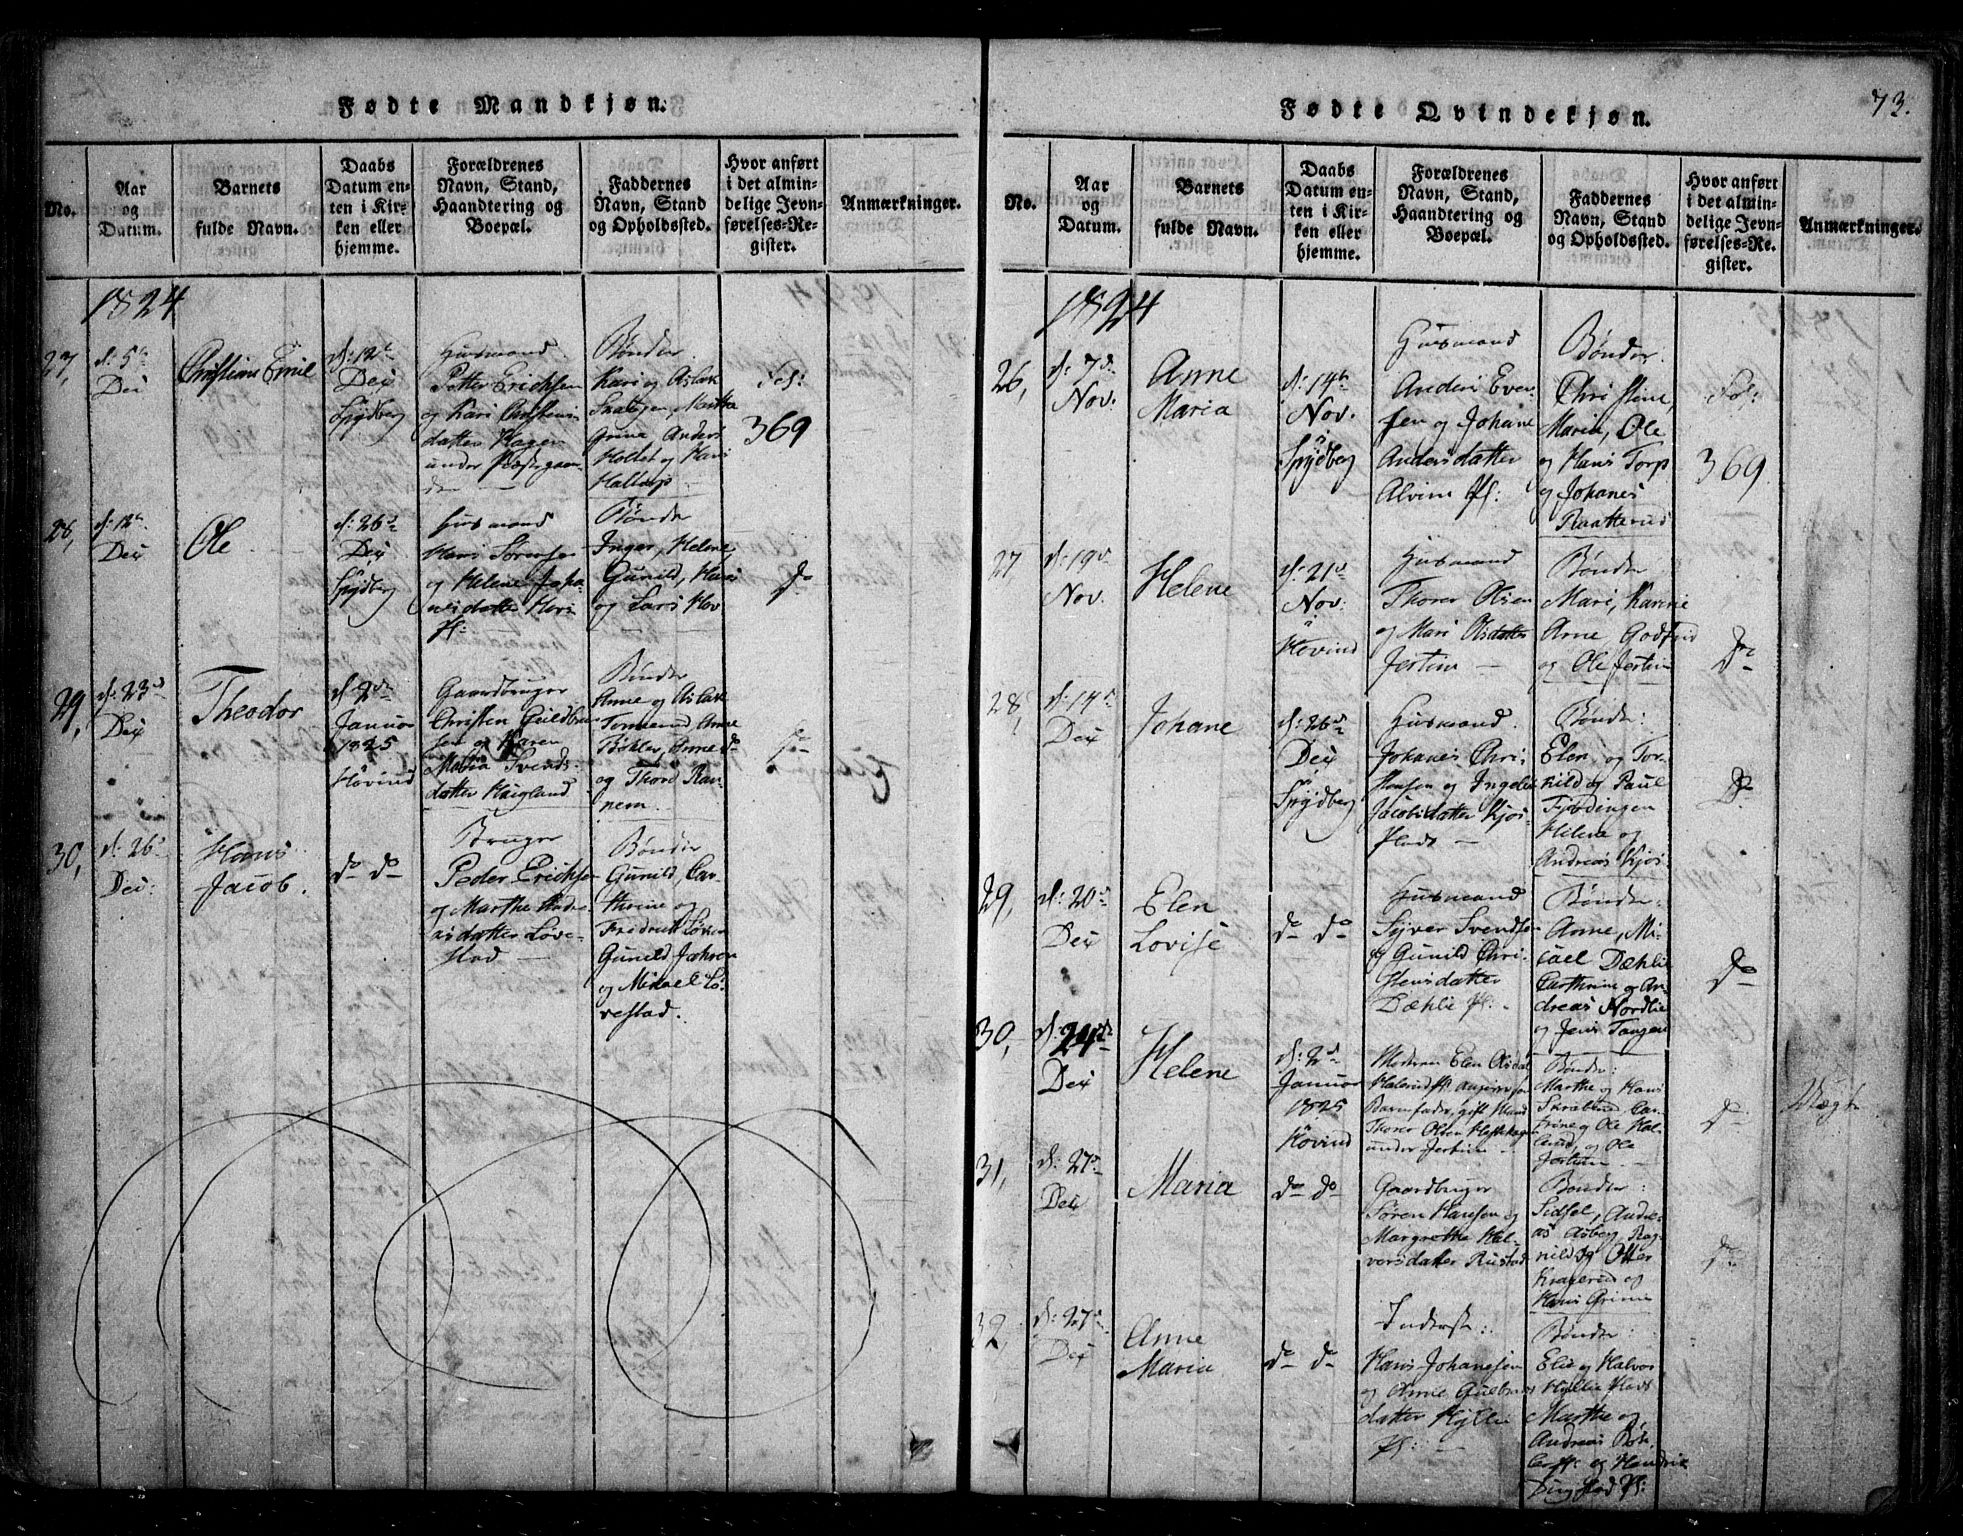 Fødte Mandkjøn.
No.
Aar
og
Datum.
Barnets
fulde Navn.
Daabs
Datum en-
ten i Kir-
ken eller
hjemme.
Forældrenes
Navn, Stand,
Haandtering og
Boepæl.
Faddernes
Navn, Stand
og Opholdssted.
Hvor anført
i det almin-
delige Jevn-
førelses-Re-
gister.
Anmærkninger.
1824
27,
d: 5te
Dec
Christian Emil
d: 12te
Dec
Spydberg
Huusmand
Petter Erichsen
og Kari Christens
datter Hagen
under Præstegaar-
den
Bønder
Kari og Aslak
Martha
Grine, Anders
Holtet og Hans
Hallerp
Fol:
369
28,
d: 12te
Dec
Ole
d: 26de
Dec
Spydberg
Huusmand
Hans Sørensen
og Helene Joha-
nesdatter Hov
Pl:
Bønder
Inger, Helene,
Gunild, Hans
og Lars Hov
do
29,
d: 23d
Dec
Theodor
d: 2den
Januar
1825
Hövind
Gaardbruger
Christen Guldbran
sen og Karen
Maria Svends-
datter Haugland
Bønder
Anne og Aslak
Anne
Böhler, Anne
og Thore Ran-
nem.
do
30,
d: 26
Dec:
Hans
Jacob.
do do
Bruger
Peder Erichsen
og Marthe Andre-
asdatter Löve-
stad
Bønder
Gunild, Ca-
thrine og
Fredrik Löve
Gunild Jahren
og Michael Lö-
vestad.
Fødte Qvindekjøn.
73.
No.
Aar
og
Datum.
Barnets
fulde Navn.
Daabs
Datum en-
ten i Kir-
ken eller
hjemme.
Forældrenes
Navn, Stand,
Haandtering og
Boepæl.
Faddernes
Navn, Stand
og Opholdssted.
Hvor anført
i det almin-
delige Jevn-
førelses-Re-
gister.
Anmærkninger.
1824
26,
d: 7de
Nov:
Anne
Maria
d: 14de
Nov.
i
Spydberg
Huusmand
Anders Even-
sen og Johane
Andersdatter
Alvim Pl:
Bønder.
Christine,
Maria, Ole
og Hans Torp
og Johanes
Raatterud
Fol:
369
27
d: 19de
Nov.
Helene
d: 21de
Nov:
i
Hovind
Huusmand
Thorer Olsen
og Mari Olsdatter
Jertin
Bønder
Mari, Karine
Arne Godtfrid
og Ole Jertin
do
28,
d: 14de
Dec
Johane
d: 26de
Dec
Spydberg
Huusmand
Johanes Chri-
stensen og Ingeborg
Jacobsdatter Kjos
Pladz
Bønder:
Elen, og Tor-
kild og Paul
Fjeldingen
Helene og
Andreas Kjos
do
29,
d: 20de
Dec
Elen
Lovise
do do
Huusmand
Syver Svendsen
og Gunild Chri-
stensdatter
Dæhlie Pl:
Bønder:
Anne, Mi-
cael Dæhlie
Carthrine og An-
dreas Nordlie
og Jens Tangen
do
30,
d: 24de
Dec
Helene
d: 2den
Januar
1825
Hövind
Moderen Elen Olsdat
Halerud Pl: angiven for
Barnefader, gift Mand
Thorer Olsen
under Jertin
Bønder:
Marthe og Hans
Skrablund, Ca-
trine og Ole Hal-
lerud, og Ole
Jertin
do
Uægte
31,
d: 27de
Dec
Maria
do do
Gaardbruger
Søren Hansen og
Margrethe Hal-
vorsdatter Rustad
Bønder:
Sidsel, Andre-
as Asberg, Rag-
nild og Otter
Kragerud og
Hans Grime
do
32,
d: 27de
Dec
Anne
Maria
do do
Inderste:
Hans Johanesen
og Anne Gulbrands
datter Hyllie
Pl:
Bønder:
Elie og Halvor
Hyllie
Marthe og
Andreas
og Hendrik
Pl: